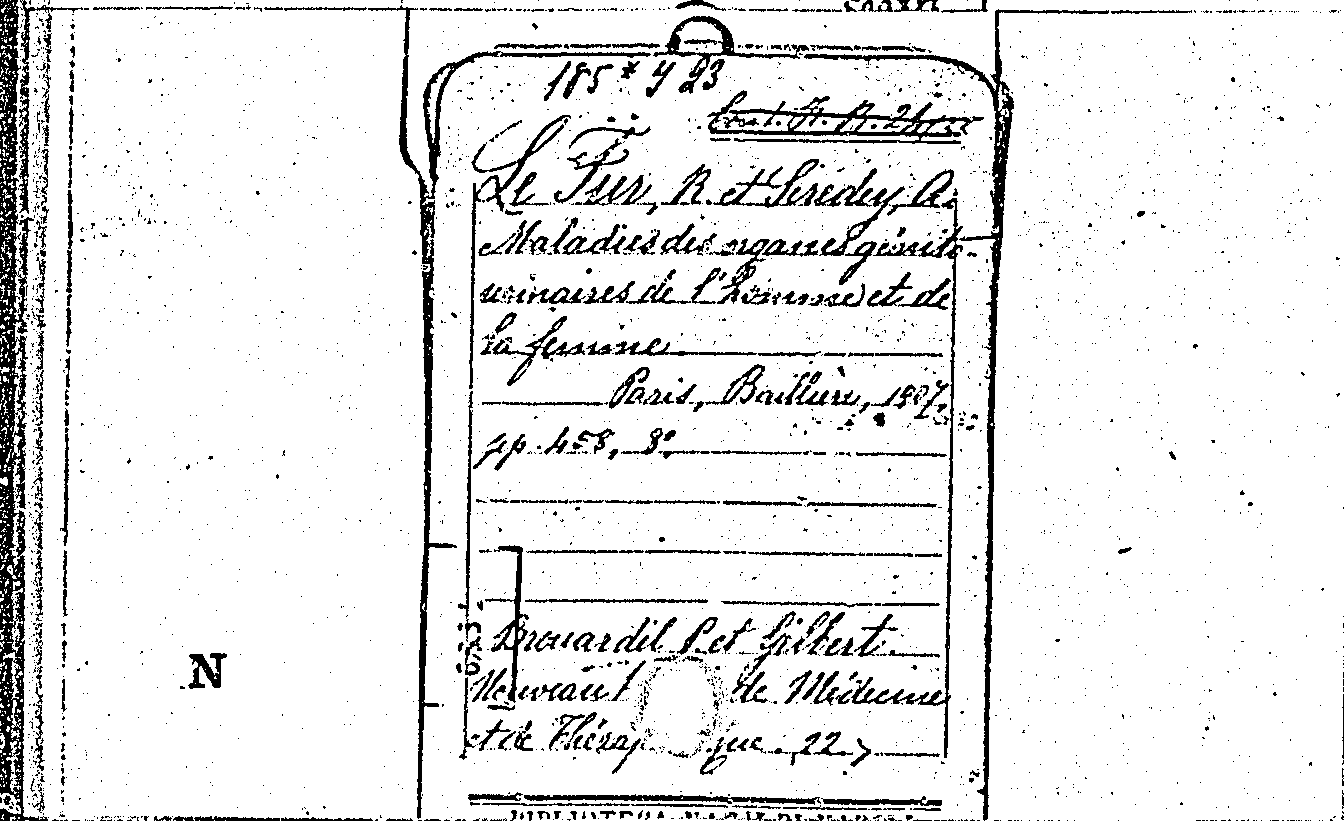 185* Y 23
Le Fur, R. et Siredey, A.
Maladies des organes génito-
urinaires de l'homme et de
la femme
Paris, Baillière, 1907.
pp. 458, 8º.
Brouardel P. et Gilbert.
Nouveau de Médecine
et de 22
N